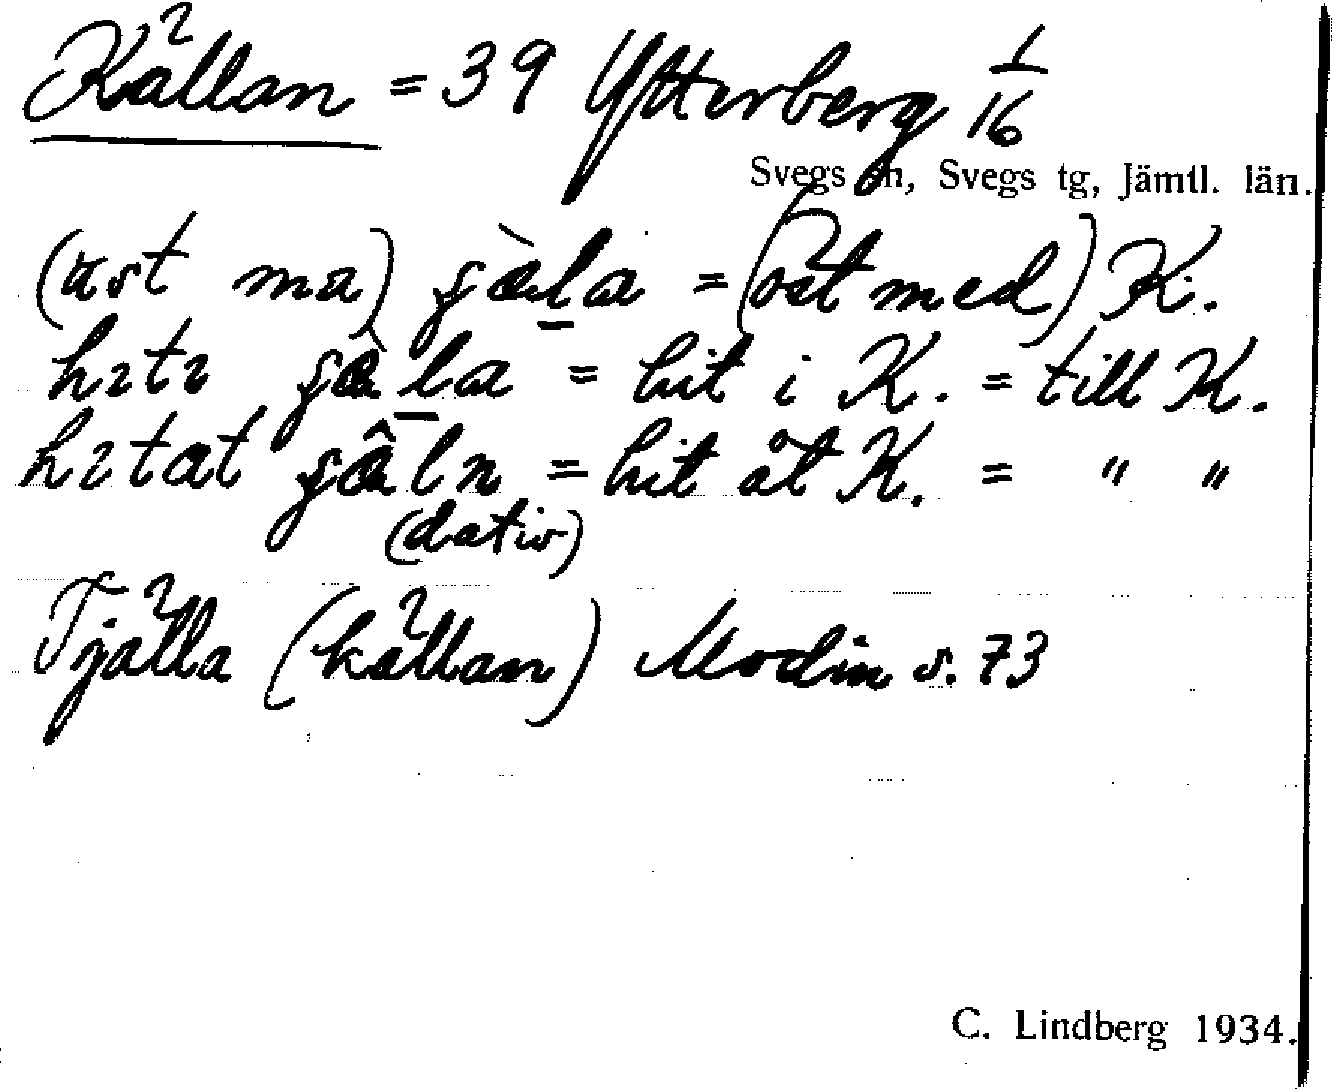 Källan = 39 Ytterberg 1/16
Svegs sn, Svegs tg, Jämtl. län.
(ust ma) = (öst med) K.
= hit i K. = till K.
= hit åt K. = " "
(dativ)
Tjälla (källan) Modin s. 73
C. Lindberg 1934.